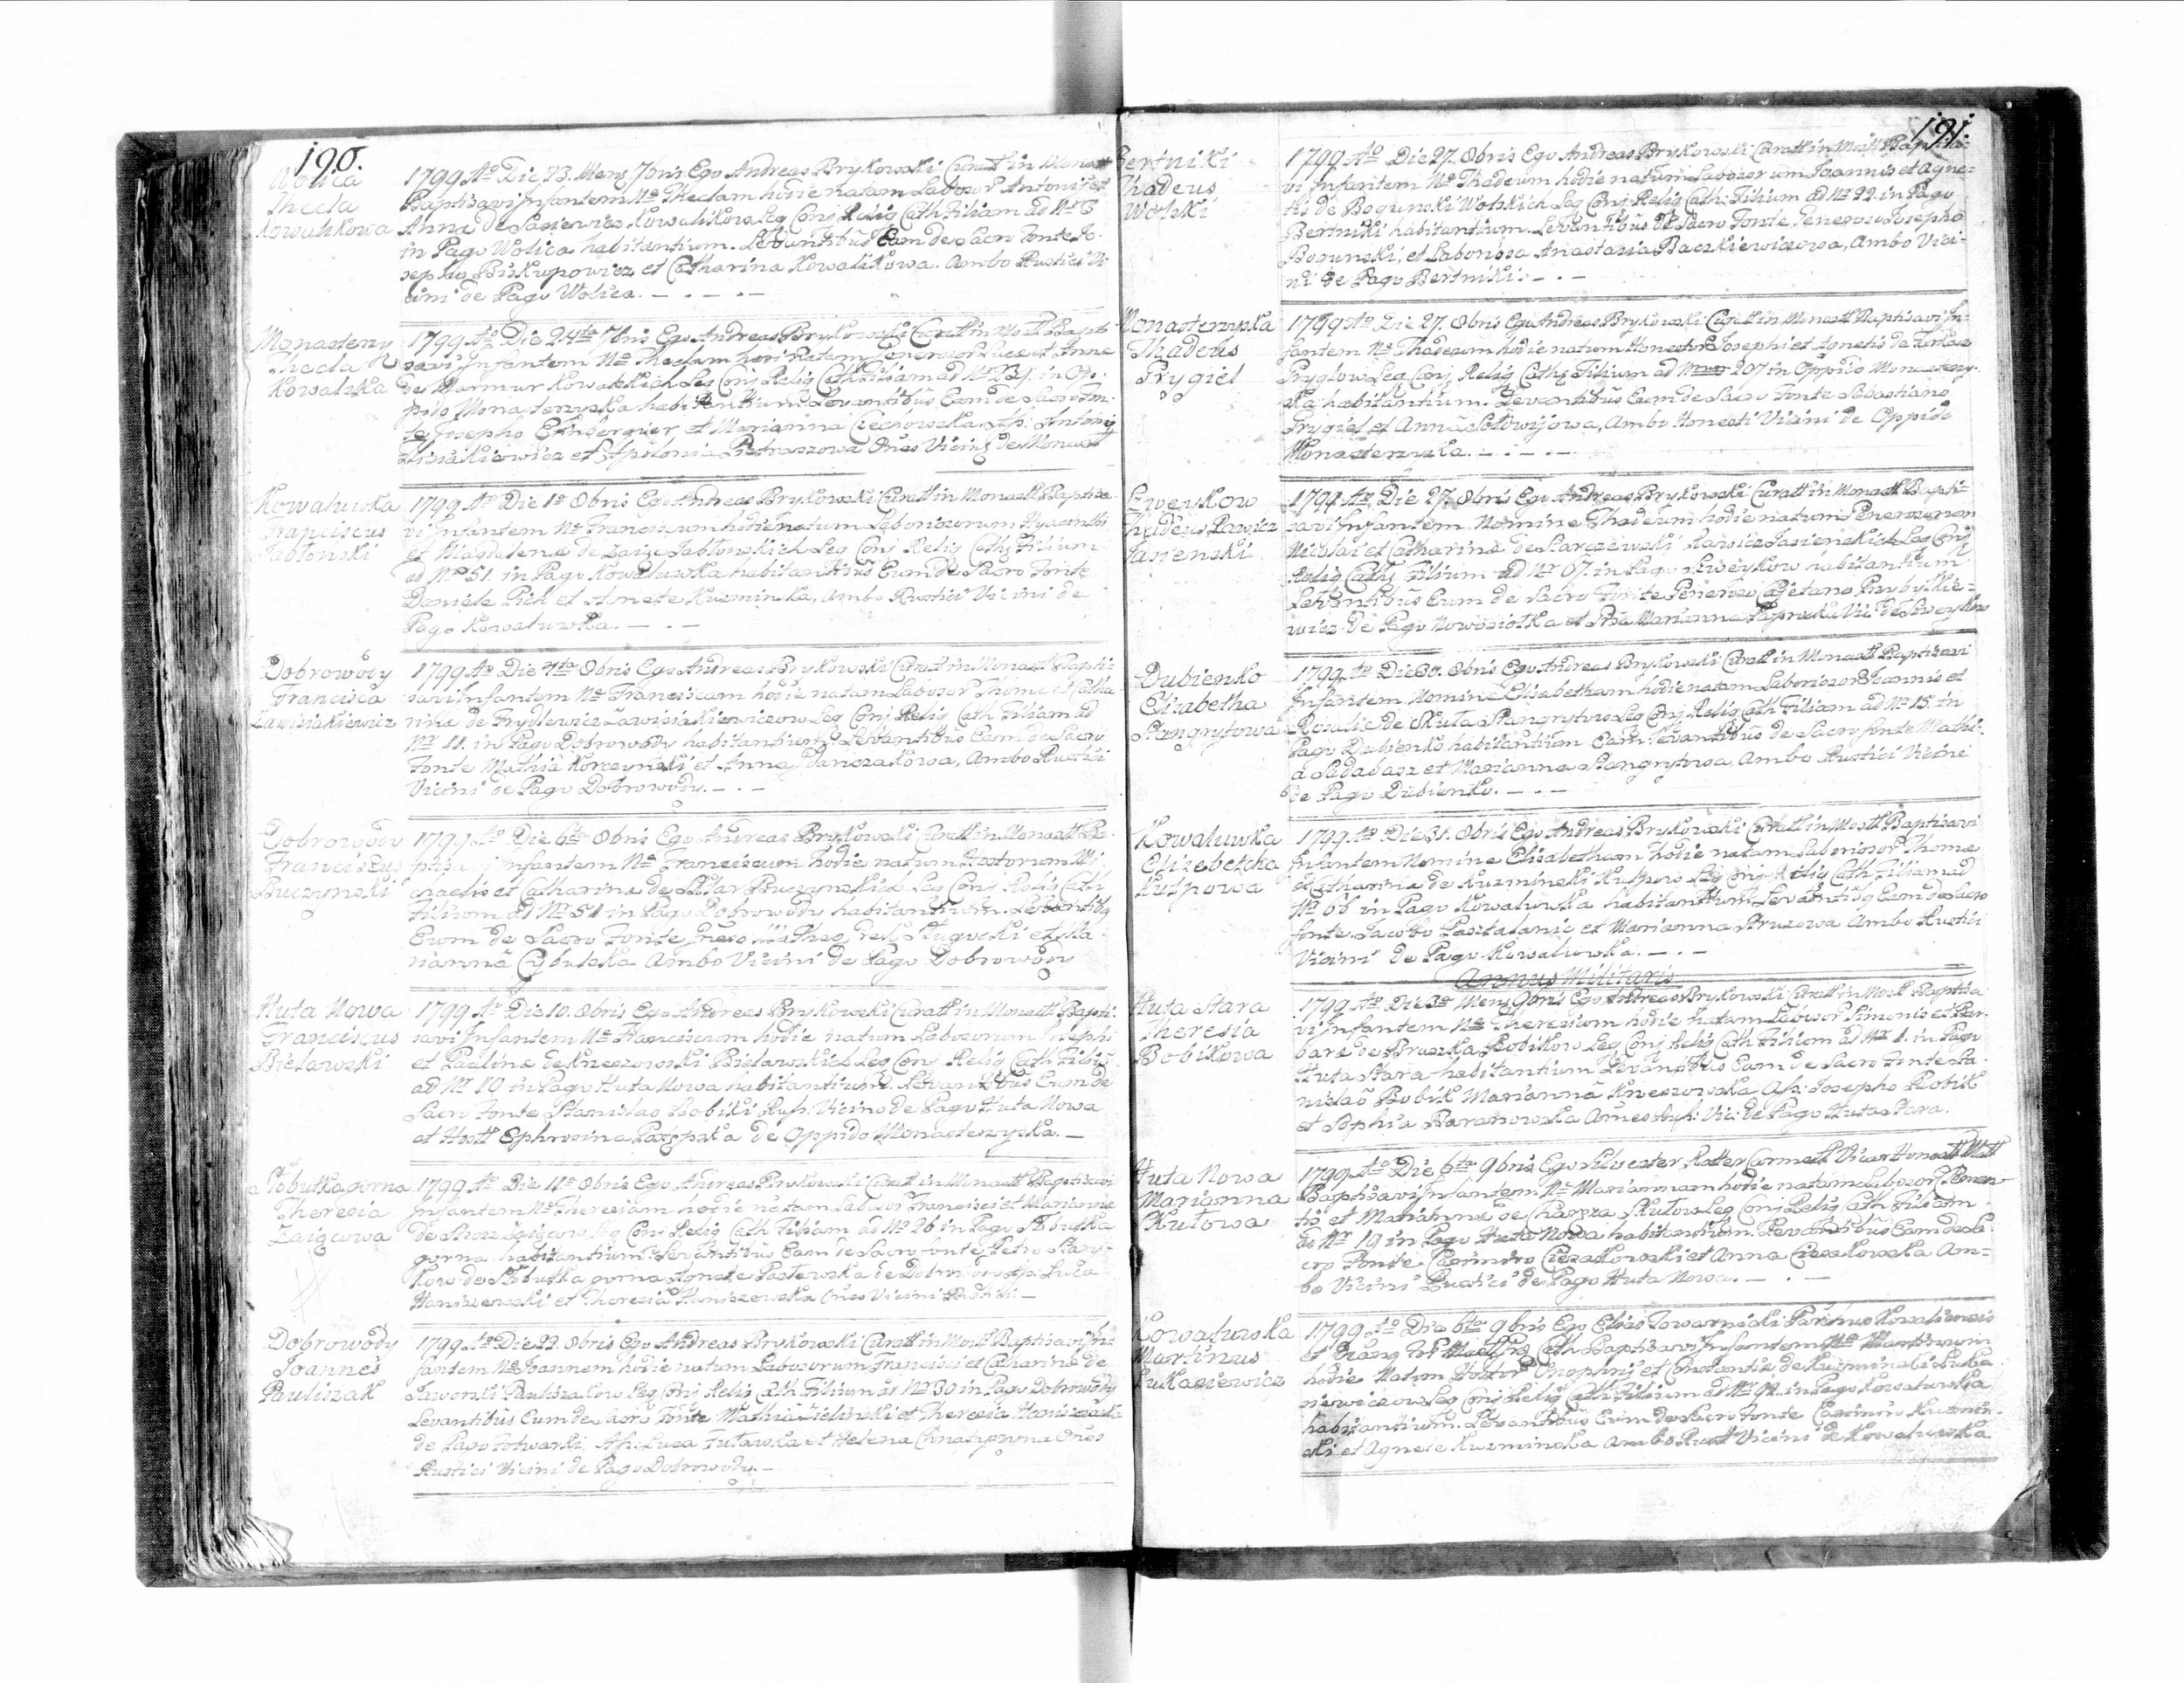 190.
Wolica
Thecla
Kowalikowa
1799 Ao Die 23. Mens 7bris Ego Andreas Brykowski Curatt in Monast
Baptisavi Infantem Ne Theclam hodie natam Laborior Antonij et
Anna de Kowalikow Leg Conj Relig Cath Filiam ad Nr 3
in Pago Wolica habitantium. Levantibus Eam de Sacro Fonte Jo-
sepho Biskupowicz et Catharina Kowalikowa. Ambo Rustici Vi-
cini de Pago Wolica.
Monasterzy
Thecla
Kowalska
1799 Ao Die 24ta 7bris Ego Andreas Brykowski Curatt in Monast Bapti-
savi Infantem Ne Theclam heri natam Generosor Lucae et Anna
de Marmur Kowalskich Leg Conj Relig Cath Filiam ad Nr 234. in Op-
pido Monasterzyska habitantium. Levantibus Eam de Sacro Fon-
te Josepho et Marianna Ciechowska. As: Antonij
et Apolonia Pietraszowa Omes Vicini de Monast
Kowaluwka
Franciscus
Jabłonski
1799 Ao Die 1a 8bris Ego Andreas Brykowski Curatt in Monast Baptisa-
vi Infantem Ne Franciscum hodie natum Laboriosorum Hyacinthi
et Magdalena de Zaize Jabłonskich Leg Conj Relig Cath Filium
ad Nr 51. in Pago Kowaluwka habitantibus Eum de Sacro Fonte
Daniele Pich et Agnete Kuzminska, Ambo Rustici Vicini de
Pago Kowaluwka.
Dobrowody
Francisca
Zawisiakiewicz
1799 Ao Die 4ta 8bris Ego Andreas Brykowski Curatt in Monast Bapti-
savi Infantem Ne Franciscam hodie natam Laborior Thoma et Catha-
rina de Frydlewicz Zawisiakiewiczow Leg Conj Relig Cath Filiam ad
Nr 11. in Pago Dobrowody habitantium. Levantibus Eam de Sacro
Fonte Mathia Korczynski et Anna Danczakowa, Ambo Rustici
Vicini de Pago Dobrowody.
Dobrowody
Franciscus
Buczynski
1799 Ao Die 6ta 8bris Ego Andreas Brykowski Curatt in Monast Ba-
ptisavi Infantem Ne Franciscum hodie natum Mi-
chaelis et Catharina de Buczynskich Leg Conj Relig Cath
Filium ad Nr 51 in Pago Dobrowody habitantium. Levantibq
Eum de Sacro Fonte et Ma-
rianna Cybulska Ambo Vicini de Pago Dobrowody
Huta Nowa
Franciscus
Bielawski
1799 Ao Die 10. 8bris Ego Andreas Brykowski Curatt in Monast Bapti-
savi Infantem Ne Franciscum hodie natum Laborosorum Josephi
et Paulina de Kneszowski Bielawskich Leg Conj Relig Cath Filium
ad Nr 10 in Pago Huta Nowa habitantium. Levantibus Eum de
Sacro Fonte Stanislao Bobiki Rus: Vicino de Pago Huta Nowa
et Hostt Ephrosina de Oppido Monasterzyska.
Słobutka gorna
Theresia
Zaigcowa
1799 Ao Die 11a 8bris Ego Andreas Brykowski Curatt in Monast Baptisavi
Infantem Ne Theresiam hodie natam Laborior Francisci et Marianna
de Leg Conj Relig Cath Filiam ad Nr 26 in Pago Słobutka
gorna habitantium. Levantibus Eam de Sacro Fonte Petro
de Słobutka gorna Agnete Pasławska de Dobrowody As: Luca
Haniszewski et Theresia Haniszewska Omes Vicini Rustici.
Dobrowody
Joannes
Pauliszak
1799 Ao Die 22. 8bris Ego Andreas Brykowski Curatt in Mostt Baptisavi In-
fantem Ne Joannem hodie natum Laborosorum Francisci et Catharina de
Jaworski Pauliszakow Leg Conj Relig Cath Filium ad Nr 30 in Pago Dobrowody
Levantibus Eum de Sacro Fonte Mathia Zielinski et Theresia
de Pago Folwarki, As: Luca Futawska et Helena Omes
Rustici Vicini de Pago Dobrowody.
191.
Bertniki
Thadeus
Wolski
1799 Ao Die 27. 8bris Ego Andreas Brykowski Curatt in Mostt Baptisa-
vi Infantem Ne Thadeum hodie natum Laborosorum Joannis et Agne-
tis de Bogunski Wolskich Leg Conj Relig Cath: Filium ad Nr 22. in Pago
Bertniki habitantium. Levantibus de Sacro Fonte, Generoso Josepho
Bogunski, et Laboriosa Anastasia Baczkiewiczowa, Ambo Vici-
ni de Pago Bertniki.
Monasterzyska
Thadeus
Frygiel
1799 Ao Die 27. 8bris Ego Andreas Brykowski Curatt in Monast Baptisavi In-
fantem Ne Thadeum hodie natum Honestor Josephi et Agnetis de
Fryglow Leg Conj Relig Cath Filium ad Nr 207 in Oppido Monasterzy-
ska habitantium. Levantibus Eum de Sacro Fonte Sebastiano
Frygiel et Anna Sołowijowa, Ambo Honesti Vicini de Oppido
Monasterzyska.
Szweykow
Thadeus Rawicz
Jasienski
1799 Ao Die 27. 8bris Ego Andreas Brykowski Curatt in Monast Bapti-
savi Infantem Nomine Thadeum hodie natum Generosorum
Nicolai et Catharina de Starczewski Rawicz Jasienskich Leg Conj
Relig Cath Filium ad Nr 67. in Pago Szweykow habitantium
Levantibus Eum de Sacro Fonte Generoso Cajetano Przybylkie-
wicz de Pago Nowosiołka et Marianna Vic: de Szweykow
Dubienko
Elizabetha
Stangrytowa
1799 Ao Die 30. 8bris Ego Andreas Brykowski Curatt in Monast Baptisavi
Infantem Nomine Elisabetham hodie natam Laboriosor Joannis et
Rosalie de Skuta Stangrytow Leg Conj Relig Cath Filiam ad Nr 15. in
Pago Dubienko habitantium Eam levantibus de Sacro fonte Mathi-
a Sadabasz et Marianna Stangrytowa, Ambo Rustici Vicini
de Pago Dubienko.
Kowaluwka
Elizebetcha
Kulpowa
1799 Ao Die 31. 8bris Ego Andreas Brykowski Curatt in Mostt Baptisavi
Infantem Nomine Elisabetham hodie natam Laboriosor Thoma
et Catharina de Kuzminski Kulpow Leg Conj Relig Cath Filiam ad
Nr 66 in Pago Kowaluwka habitantium Levantibq Eam de Sacro
fonte Jacobo et Marianna Ambo Rustici
Vicini de Pago Kowaluwka.
Annus Militaris
Huta Stara
Theresia
Bobikowa
1799 Ao Die 3a Mens 9bris Ego Andreas Brykowski Curatt in Mostt Baptisa-
vi Infantem Ne Theresiam hodie natam Laborior Simonis et Bar-
bara de Bruszka Bobikow Leg Conj Relig Cath Filiam ad Nr 1. in Pago
Huta Stara habitantium Levantibus Eam de Sacro Fonte Sta-
nislao Bobik Marianna Kneszowska As: Josepho Bobik
et Sophia Baranowska Omes Rus: Vic: de Pago Huta Stara.
Huta Nowa
Marianna
Skutowa
1799 Ao Die 6ta 9bris Ego Silvester Rotter Carmelit Vicar
Baptisavi Infantem Ne Mariannam hodie natam Laborosor Clemen-
tis et Marianna de Skutow Leg Conj Relig Cath Filiam
ad Nr 19 in Pago Huta Nowa habitantium. Levantibus Eam de Sa-
cro Fonte Casimiro Ciezakowski et Anna Ciezakowska Am-
bo Vicini Rustici de Pago Huta Nowa.
Kowaluwka
Martinus
Lukasiewicz
1799 Ao Die 6ta 9bris Ego Elias Towarnicki Parohus
Baptisavi Infantem Ne Martinum
hodie Natum Onophrij et Constantia de Kuzminski Luka-
siewiczow Leg Conj Relig Cath Filium ad Nr 92. in Pago Kowaluwka
habitantium. Levantibus Eum de Sacro Fonte Casimiro Kuzmin-
ski et Agnete Kuzminska Ambo Rust Vicini de Kowaluwka